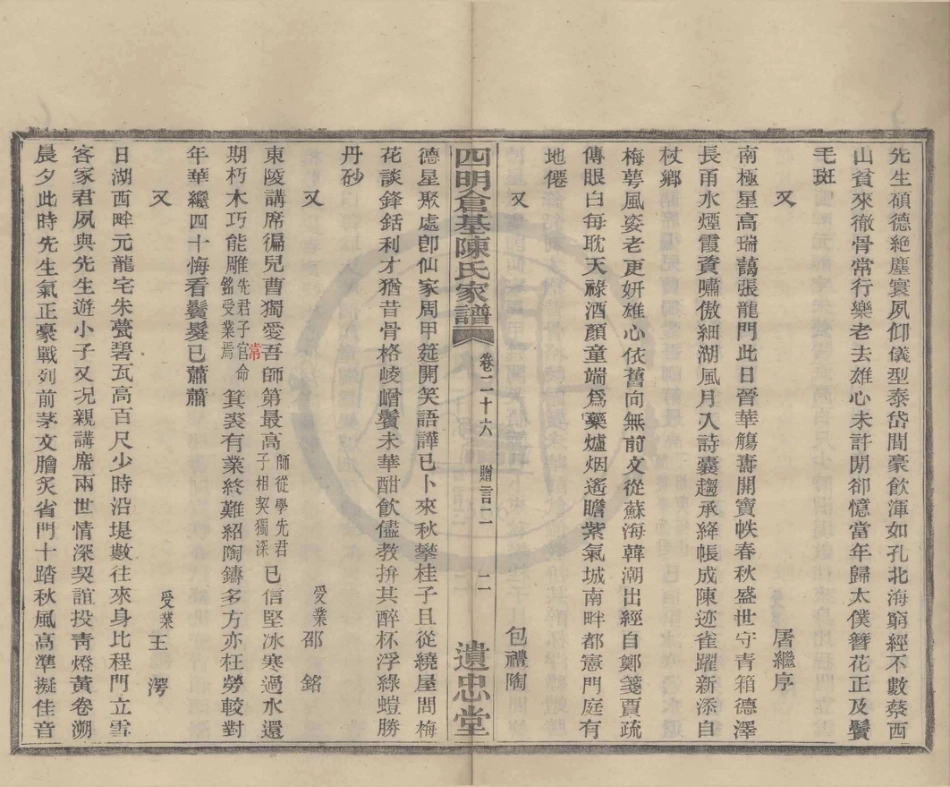 先生碩德絶塵寰夙仰儀型泰岱間豪飲渾如孔北海窮經不數蔡西
山貧來徹骨常行樂老去雄心未許閒卻憶當年歸太僕簪花正及鬢
毛斑
又 屠繼序
南極星高瑞藹張龍門此日晉華觴壽開寶帙春秋盛世守青箱德澤
長甬水煙霞資嘯傲細湖風月入詩囊趨承絳帳成陳迹雀躍新添自
杖鄉
梅萼風姿老更妍雄心依舊向無前文從蘇海韓潮出經自鄭箋賈疏
傳眼白每耽天祿酒顏童端爲藥爐烟遙瞻紫氣城南畔都憲門庭有
地僊
又 包禮陶
四明倉基陳氏家譜 卷二十六 贈言二 二 遺忠堂
德星聚處卽仙家周甲筵開笑語譁已卜來秋攀桂子且從繞屋問梅
花談鋒銛利才猶昔骨格崚嶒鬢未華酣飲儘教拚其醉杯浮綠螘勝
丹砂
又 受業邵銘
東陵講席徧兒曹獨愛吾師第最高師從學先君子相契獨深已信堅冰寒過水還
常
期朽木巧能雕先君子官命銘受業焉箕裘有業終難紹陶鑄多方亦枉勞較對
年華纔四十悔看鬢髮已蕭蕭
又 受業王澪
日湖西畔元龍宅朱甍碧瓦高百尺少時沿堤數往來身比程門立雪
客家君夙與先生遊小子又況親講席兩世情深契誼投靑燈黃卷溯
晨夕此時先生氣正豪戰列前茅文膾炙省門十踏秋風高準擬佳音